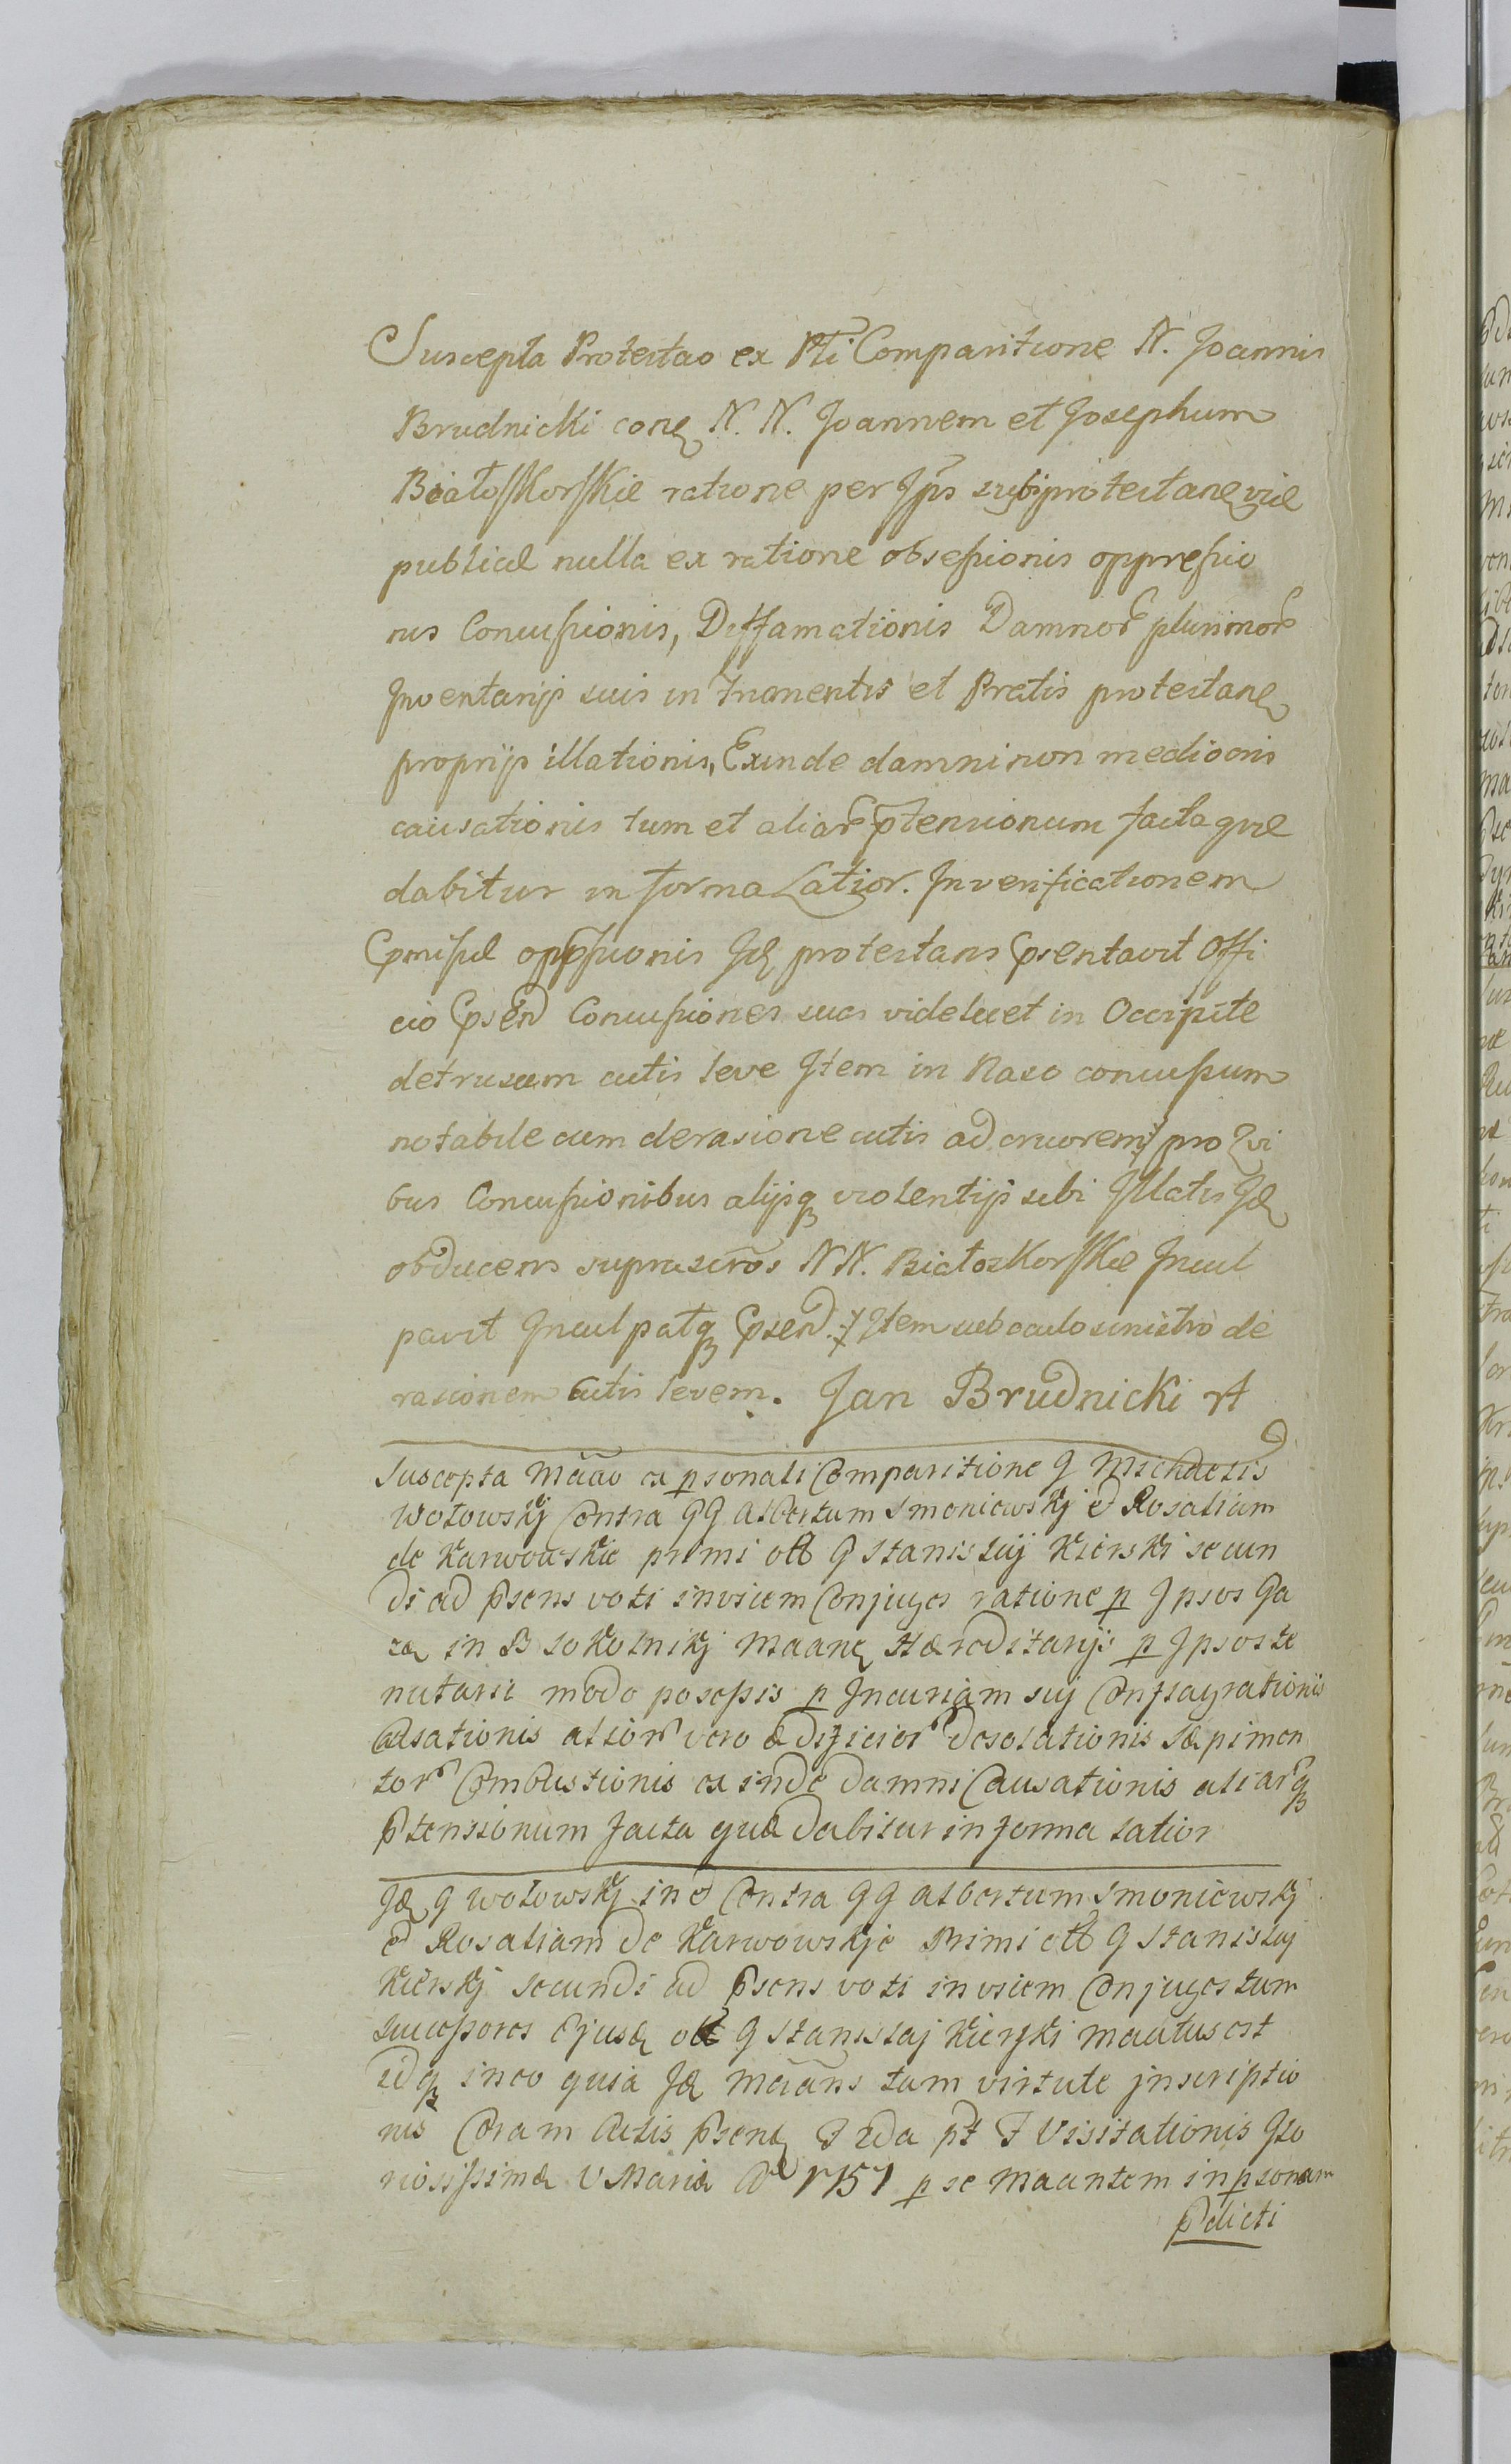 Suscepta Protestao ex Pti Comparitione N. Joannis
Brudnicki conq N. N. Joannem et Josephum
BiałosKorsKie ratione per Jpos sibi protestanq viæ
publicæ nulla ex ratione obsessionis oppressio
nis Concussionis, Diffamationis Damnor plurimor
Inventarijs suis in frumentis et Pratis protestanq
proprijs illationis, Exinde damni non mediocris
causationis tum et aliar ptensionum facta quæ
dabitur in forma Latior. In verificationem
pmissæ oppssionis Jdq protestans psentavit Offi
cio psen Concussiones suas videlicet in Occipite
detrusum cutis leve Jtem in Naso concussum
notabile cum derasione cutis ad cruorem pro qvi
bus Concussionibus alijsq violentijs sibi Jllatis Jdq
obducens suprascros NN. BiałoszKorsKie Jncul
pavit Jnculpatq psen. Jtem sub oculo sinistro de
rasionem cutis levem. Jan Brudnicki
Suscepta Maao ex psonali Comparitione G Michaelis
Wołowskj Contra GG Albertum Smoniewskj et Rosaliam
de Karwowskie primi olt G Stanislaij Kierski secun
di ad psens voti invicem Conjuges ratione p Jpsos
in B Sokołnikj Maanq Hæreditarijs p Jpsos te
nutarie modo possessis p Jncuriam suj Conflagrationis
Causationis alior vero ædificior Desolationis Sæpimen
tor Combustionis exinde Damni Causationis aliarq
ptensionum facta quæ Dabitur in forma latior
Jdq G Wołowskj in et Contra GG Albertum Smoniewskj
et Rosaliam De Karwowskje Primi olt G Stanislaj
Kierskj Secundi ad psens voti invicem Conjuges tum
successores Ejusq olt G Stanislaj Kierskj Maatus est
idq in eo quia Jdq Maans tum virtute jnscriptio
nis Coram Actis psenq F 2da pt F Visitationis Glo
riosissimæ V Mariæ Ao 1757 p se Maantem in psonam
pdicti